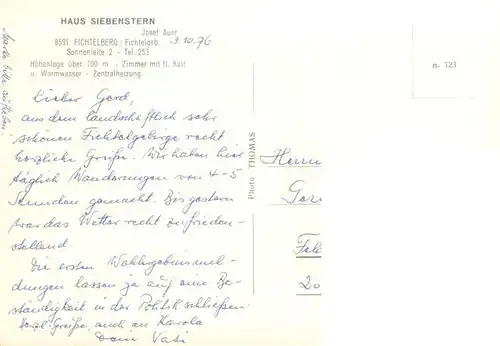 HAUS SIEBENSTERN
Josef Auer
8591 FICHTELBERG / Fichtelgeb.
Sonnenleite 2 - Tel. 253
Höhenlage über 700 m - Zimmer mit fl. Kalt
u. Warmwasser - Zentralheizung.
3.10.76
Marke bitte aufheben!
Lieber Gerd,
aus dem landschaftlich sehr
schönen Fichtelgebirge recht
herzliche Grüße. Wir haben hier
täglich Wanderungen von 4-5
Stunden gemacht. Bis gestern
war das Wetter recht zufrieden-
stellend.
Die ersten Wahlergebnismel-
dungen lassen ja auf eine Be-
ständigkeit in der Politik schließen.
Herzl. Grüße, auch an Karola
Dein Vati
Photo THOMAS
n. 123
Herrn
Ger
Fel
20